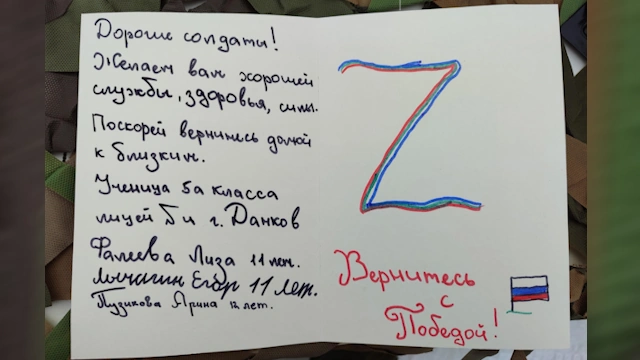 Дорогие солдаты!
Желаем вам хорошей
службы, здоровья, силы.
Поскорей вернитесь домой
к близким.
Ученица 5а класса
лицей 5 и г. Данков
Фалеева Лиза 11 лет.
Лычагин Егор 11 лет.
Пузикова Арина 12 лет.
Z
Вернитесь
с
Победой!